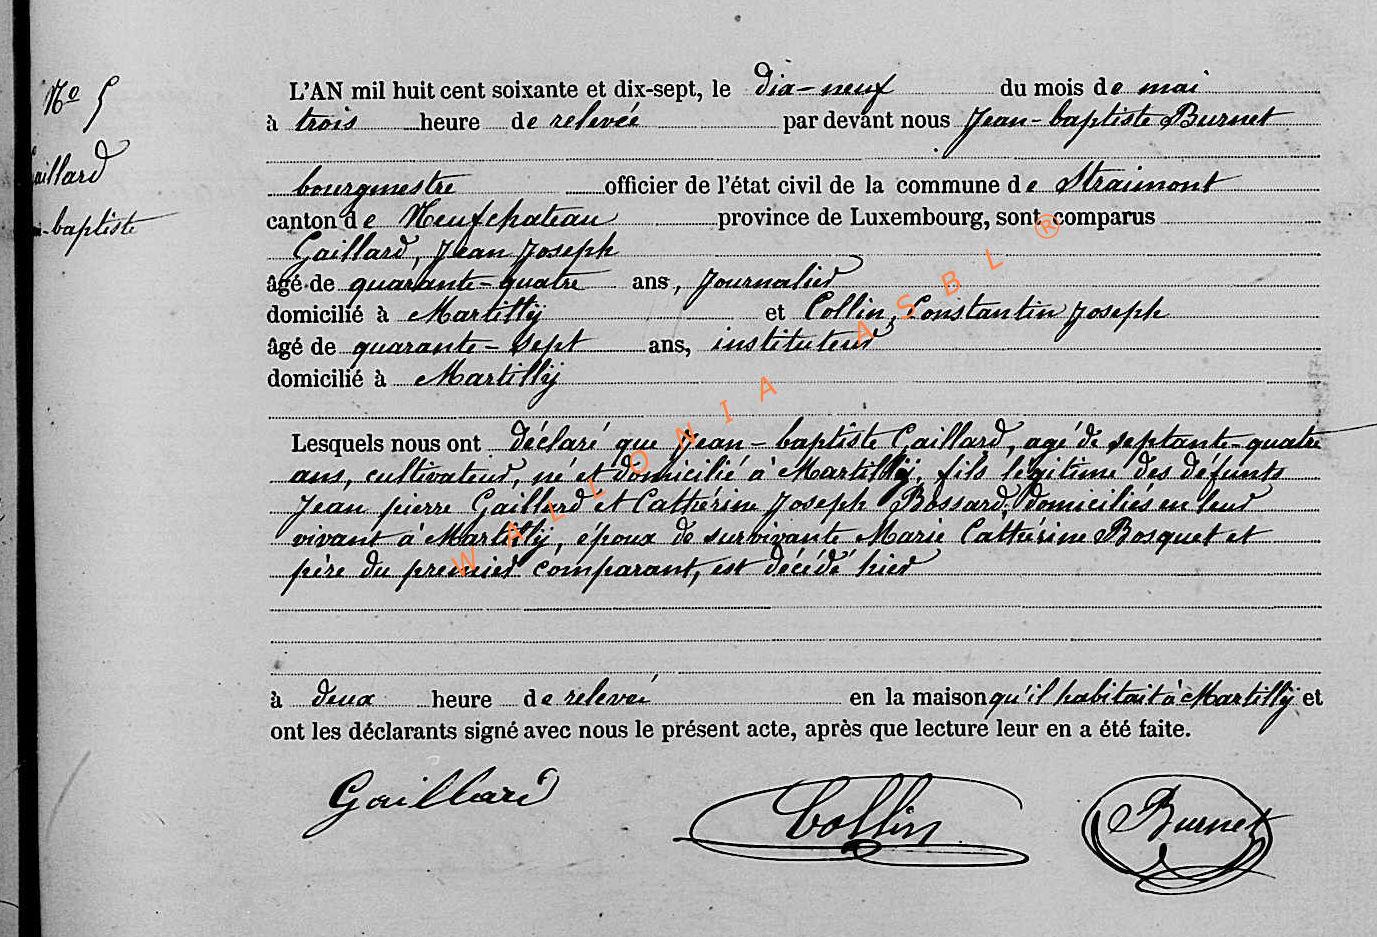 No 5
aillard
-baptiste
L'AN mil huit cent soixante et dix-sept, le dix-neuf du mois de mai
à trois heure de relevée par devant nous Jean-baptiste Burnet
bourgmestre officier de l'état civil de la commune de Straimont
canton de Neufchateau province de Luxembourg, sont comparus
Gaillard, Jean Joseph
âgé de quarante-quatre ans, Journalier
domicilié à Martilly et Collin, Constantin Joseph
âgé de quarante-sept ans, instituteur
domicilié à Martilly
Lesquels nous ont déclaré que Jean-baptiste Gaillard, agé de septante-quatre
ans, cultivateur, né et domicilié à Martilly, fils légitime des défunts
Jean pierre Gaillard et Cathérine Joseph Bossard domiciliés en leur
vivant à Martilly, époux de survivante Marie Cathérine Bosquet et
père du premier comparant, est décédé hier
à deux heure de relevée en la maison qu'il habitait à Martilly et
ont les déclarants signé avec nous le présent acte, après que lecture leur en a été faite.
Gaillard Collin Burnet
WALLONIA ASBL ®